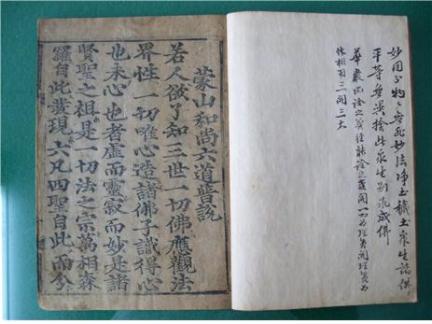 妙用物々妙法淨土穢土衆生諸佛
平等無異捨此衆生別求成佛
華嚴
体相用三大
蒙山和尚六道普說
若人欲了知三世一切佛應觀法
界性一切唯心造諸佛子識得心
也未心也者虛而靈寂而妙是諸
賢聖之祖是一切法之宗萬相森
羅自此發現六凡四聖自此而分